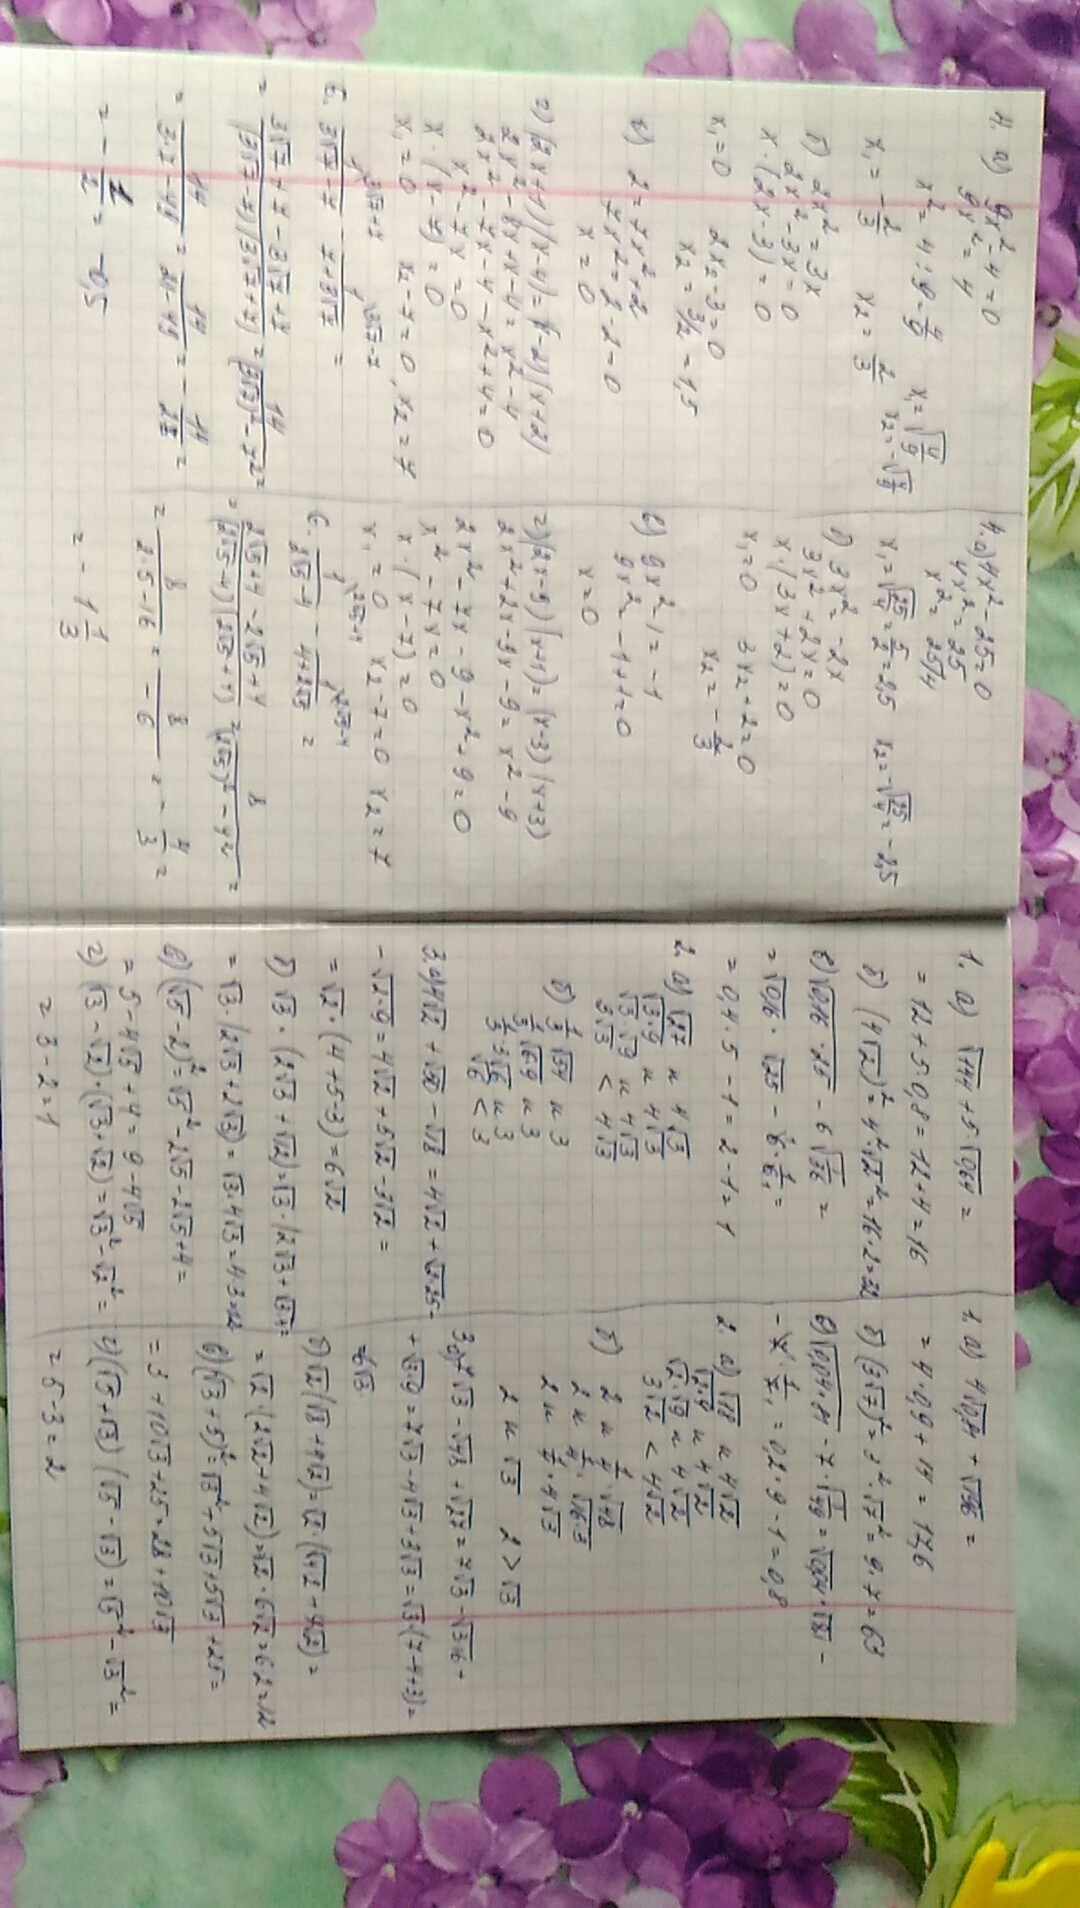 4. а) 9x² - 4 = 0
9x² = 4
x² = 4 : 9 = 4/9 x₁ = √4/9
x₁ = - 2/3 x₂ = 2/3 x₂ = -√4/9
б) 2x² = 3x
2x² - 3x = 0
x · (2x - 3) = 0
x₁ = 0 2x₂ - 3 = 0
x₂ = 3/2 = 1,5
в) 2 = 7x² + 2
7x² = 2 - 2 = 0
x = 0
г) (2x + 1)(x - 4) = (x - 2)(x + 2)
2x² - 8x + x - 4 = x² - 4
2x² - 7x - 4 - x² + 4 = 0
x² - 7x = 0
x · (x - 7) = 0
x₁ = 0 x₂ - 7 = 0, x₂ = 7
1/(3√7 - 7) - 1/(7 + 3√7) =
= (3√7 + 7 - 3√7 + 7)/((3√7 - 7)(3√7 + 7)) = 14/((3√7)² - 7²) =
= 14/(9·7 - 49) = 14/
4. а) 4x² - 25 = 0
4x² = 25
x² = 25/4
x₁ = √25/4 = 5/2 = 2,5 x₂ = -√25/4 = -2,5
б) 3x² = -2x
3x² + 2x = 0
x · (3x + 2) = 0
x₁ = 0 3x₂ + 2 = 0
x₂ = - 2/3
в) 9x² - 1 = -1
9x² - 1 + 1 = 0
x = 0
г) (2x - 9)(x + 1) = (x - 3)(x + 3)
2x² + 2x - 9x - 9 = x² - 9
2x² - 7x - 9 - x² + 9 = 0
x² - 7x = 0
x · (x - 7) = 0
x₁ = 0 x₂ - 7 = 0 x₂ = 7
1/(2√5 - 4) - 1/(4 + 2√5) =
= (2√5 + 4 - 2√5 + 4)/((2√5 - 4)(2√5 + 4)) = 8/((2√5)² - 4²) =
= 8/(2·5 - 16) = - 8/6 = - 4/3 =
= - 1 1/3
1. а) √144 + 5√0,64 =
= 12 + 5·0,8 = 12 + 4 = 16
б) (4√2)² = 4²·√2² = 16·2 = 32
в) √0,16·25 - 6√1/36 =
= √0,16 · √25 - 6 · 1/6 =
= 0,4 · 5 - 1 = 2 - 1 = 1
2. а) √27 и 4√3
√3·9 и 4√3
√3·√9 и 4√3
3√3 < 4√3
б) 1/3 √54 и 3
1/3 √6·9 и 3
1/3 · 3√6 и 3
√6 < 3
3. а) 4√2 + √50 - √18 = 4√2 + √2·25 -
- √2·9 = 4√2 + 5√2 - 3√2 =
= √2 · (4 + 5 - 3) = 6√2
б) √3 · (2√3 + √12) = √3 · (2√3 + √3·4) =
= √3 · (2√3 + 2√3) = √3 · 4√3 = 4·3 = 12
в) (√5 - 2)² = √5² - 2√5 - 2√5 + 4 =
= 5 - 4√5 + 4 = 9 - 4√5
г) (√3 - √2)·(√3 + √2) = √3² - √2² =
= 3 - 2 = 1
1. а) 4√0,81 + √196 =
= 4·0,9 + 14 = 17,6
б) (3√7)² = 3²·√7² = 9·7 = 63
в) √0,04·81 - 7·√1/49 = √0,04 · √81 -
- 7 · 1/7 = 0,2·9 - 1 = 0,8
2. а) √18 и 4√2
√2·9 и 4√2
√2·√9 и 4√2
3√2 < 4√2
б) 2 и 1/4 · √48
2 и 1/4 · √16·3
2 и 1/4 · 4√3
2 и √3 2 > √3
3. а) 7√3 - √48 + √27 = 7√3 - √3·16 +
+ √3·9 = 7√3 - 4√3 + 3√3 = √3·(7 - 4 + 3) =
6√3
= √2 · (2√2 + 4√2) = √2 · 6√2 = 6·2 = 12
в) (√3 + 5)² = √3² + 5√3 + 5√3 + 25 =
= 3 + 10√3 + 25 = 28 + 10√3
г) (√5 + √3)(√5 - √3) = √5² - √3² =
= 5 - 3 = 2